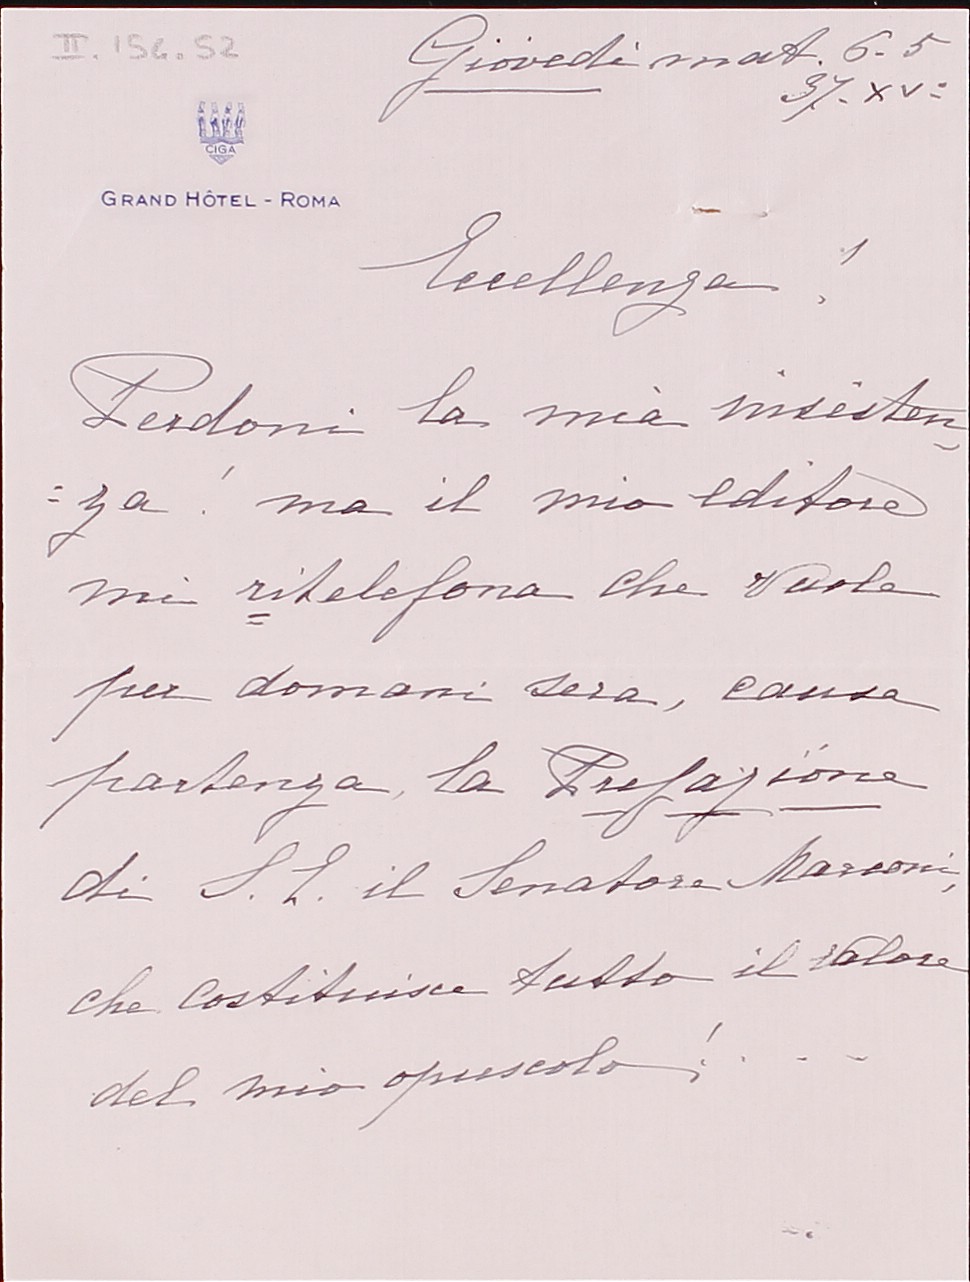 II. 156. 52
Giovedi mat. 6-5
37.-XV=
CIGA
GRAND HÔTEL - ROMA
Eccellenza!
Perdoni la mia insisten
=za! ma il mio editore
mi ritelefona che vuole
per domani sera, causa
partenza, la Prefazione
di S. E. il Senatore Marconi,
che costituisce tutto il valore
del mio opuscolo!...